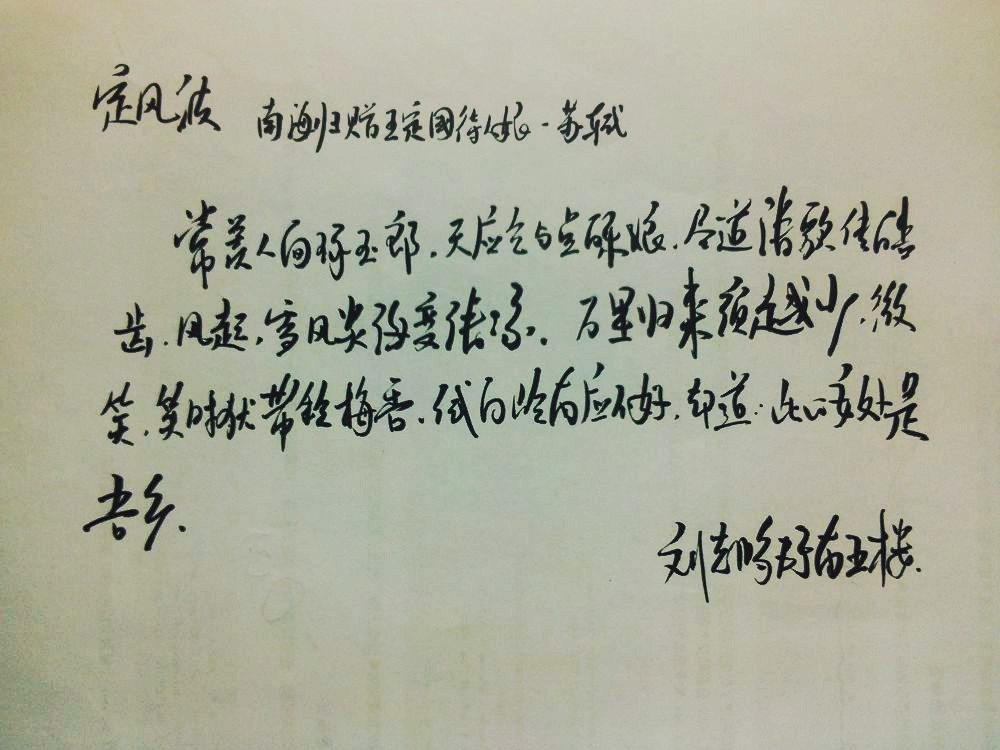 定风波 南海归赠王定國侍人娘·苏轼
常羡人间琢玉郎.天应乞与点酥娘.尽道清歌传皓
齿.风起,雪风炎海变清凉.万里归来颜越少.微
笑.笑时犹带岭梅香.试问岭南应不好.却道:此心安处是
吾乡.
刘 于南五楼.